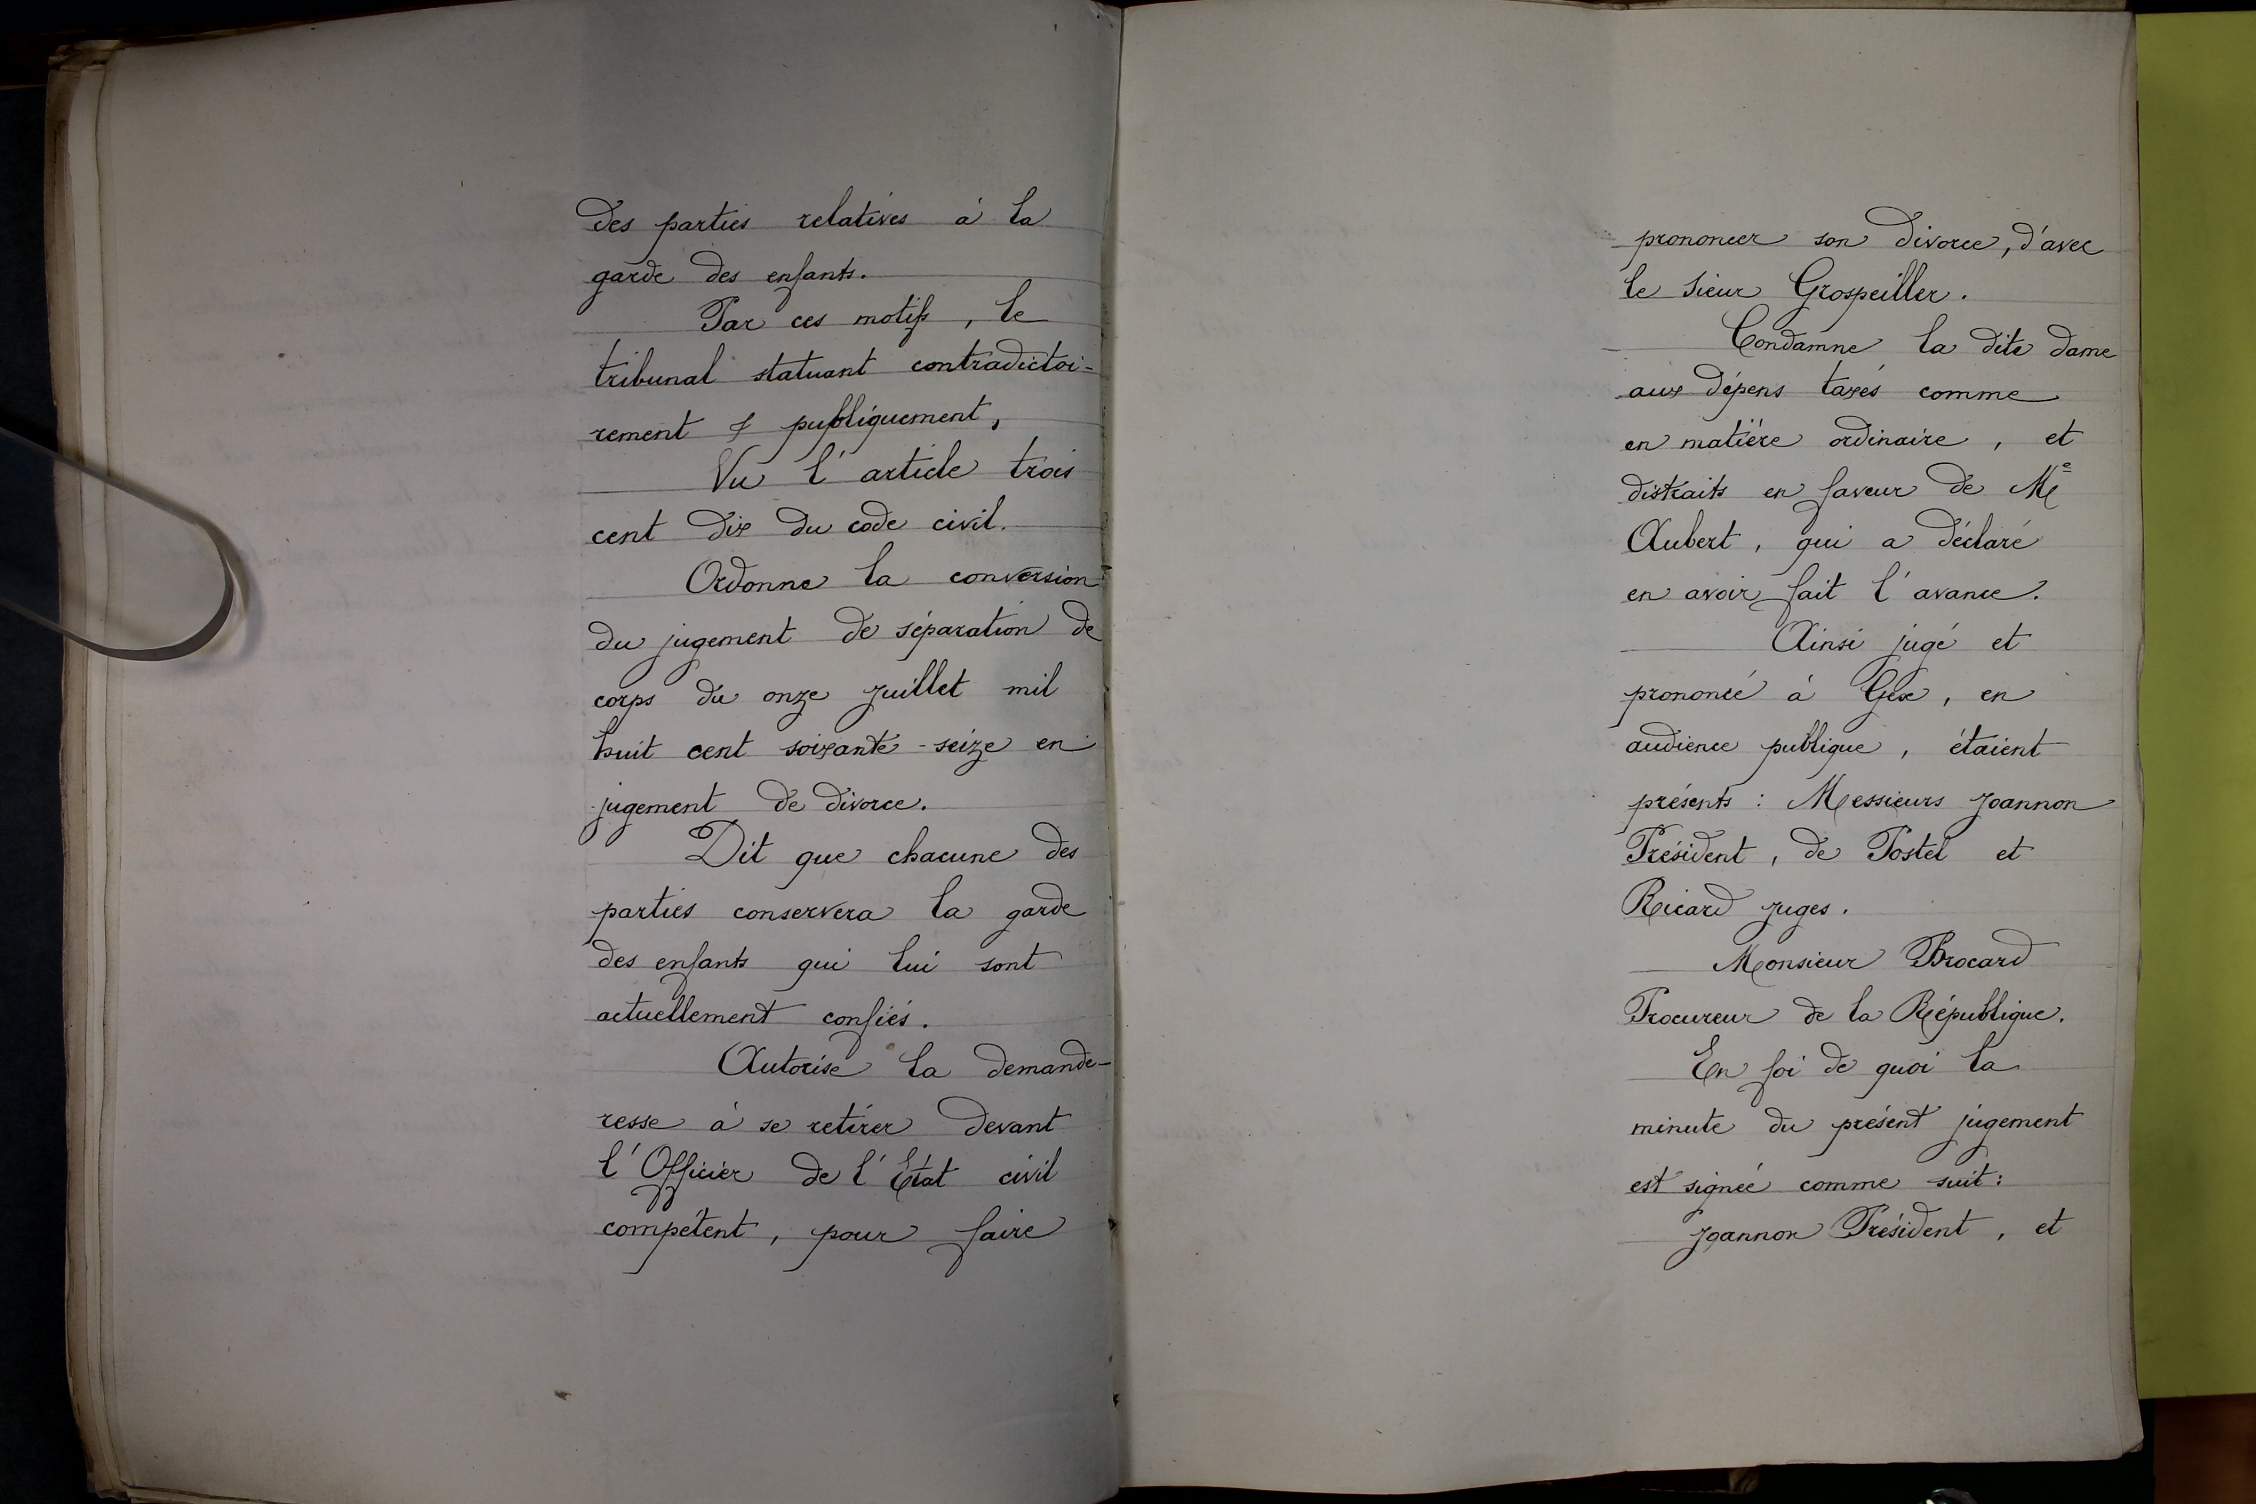 des parties relatives à la
garde des enfants.
Par ces motifs, le
tribunal statuant contradictoi-
rement & publiquement,
Vu l'article trois
cent dix du code civil.
Ordonne la conversion
du jugement de séparation de
corps du onze juillet mil
huit cent soixante-seize en
jugement de divorce.
Dit que chacune des
parties conservera la garde
des enfants qui lui sont
actuellement confiés.
Autorise la demande-
resse à se retirer devant
l'Officier de l'Etat civil
compétent, pour faire
prononcer son divorce, d'avec
le sieur Grospeiller.
Condamne la dite dame
aux dépens taxés comme
en matière ordinaire, et
distraits en faveur de Me
Aubert, qui a déclaré
en avoir fait l'avance.
Ainsi jugé et
prononcé à Gex, en
audience publique, étaient
présents : Messieurs Joannon
Président, de Postel et
Ricard juges.
Monsieur Brocard
Procureur de la République.
En foi de quoi la
minute du présent jugement
est signée comme suit :
Joannon Président, et